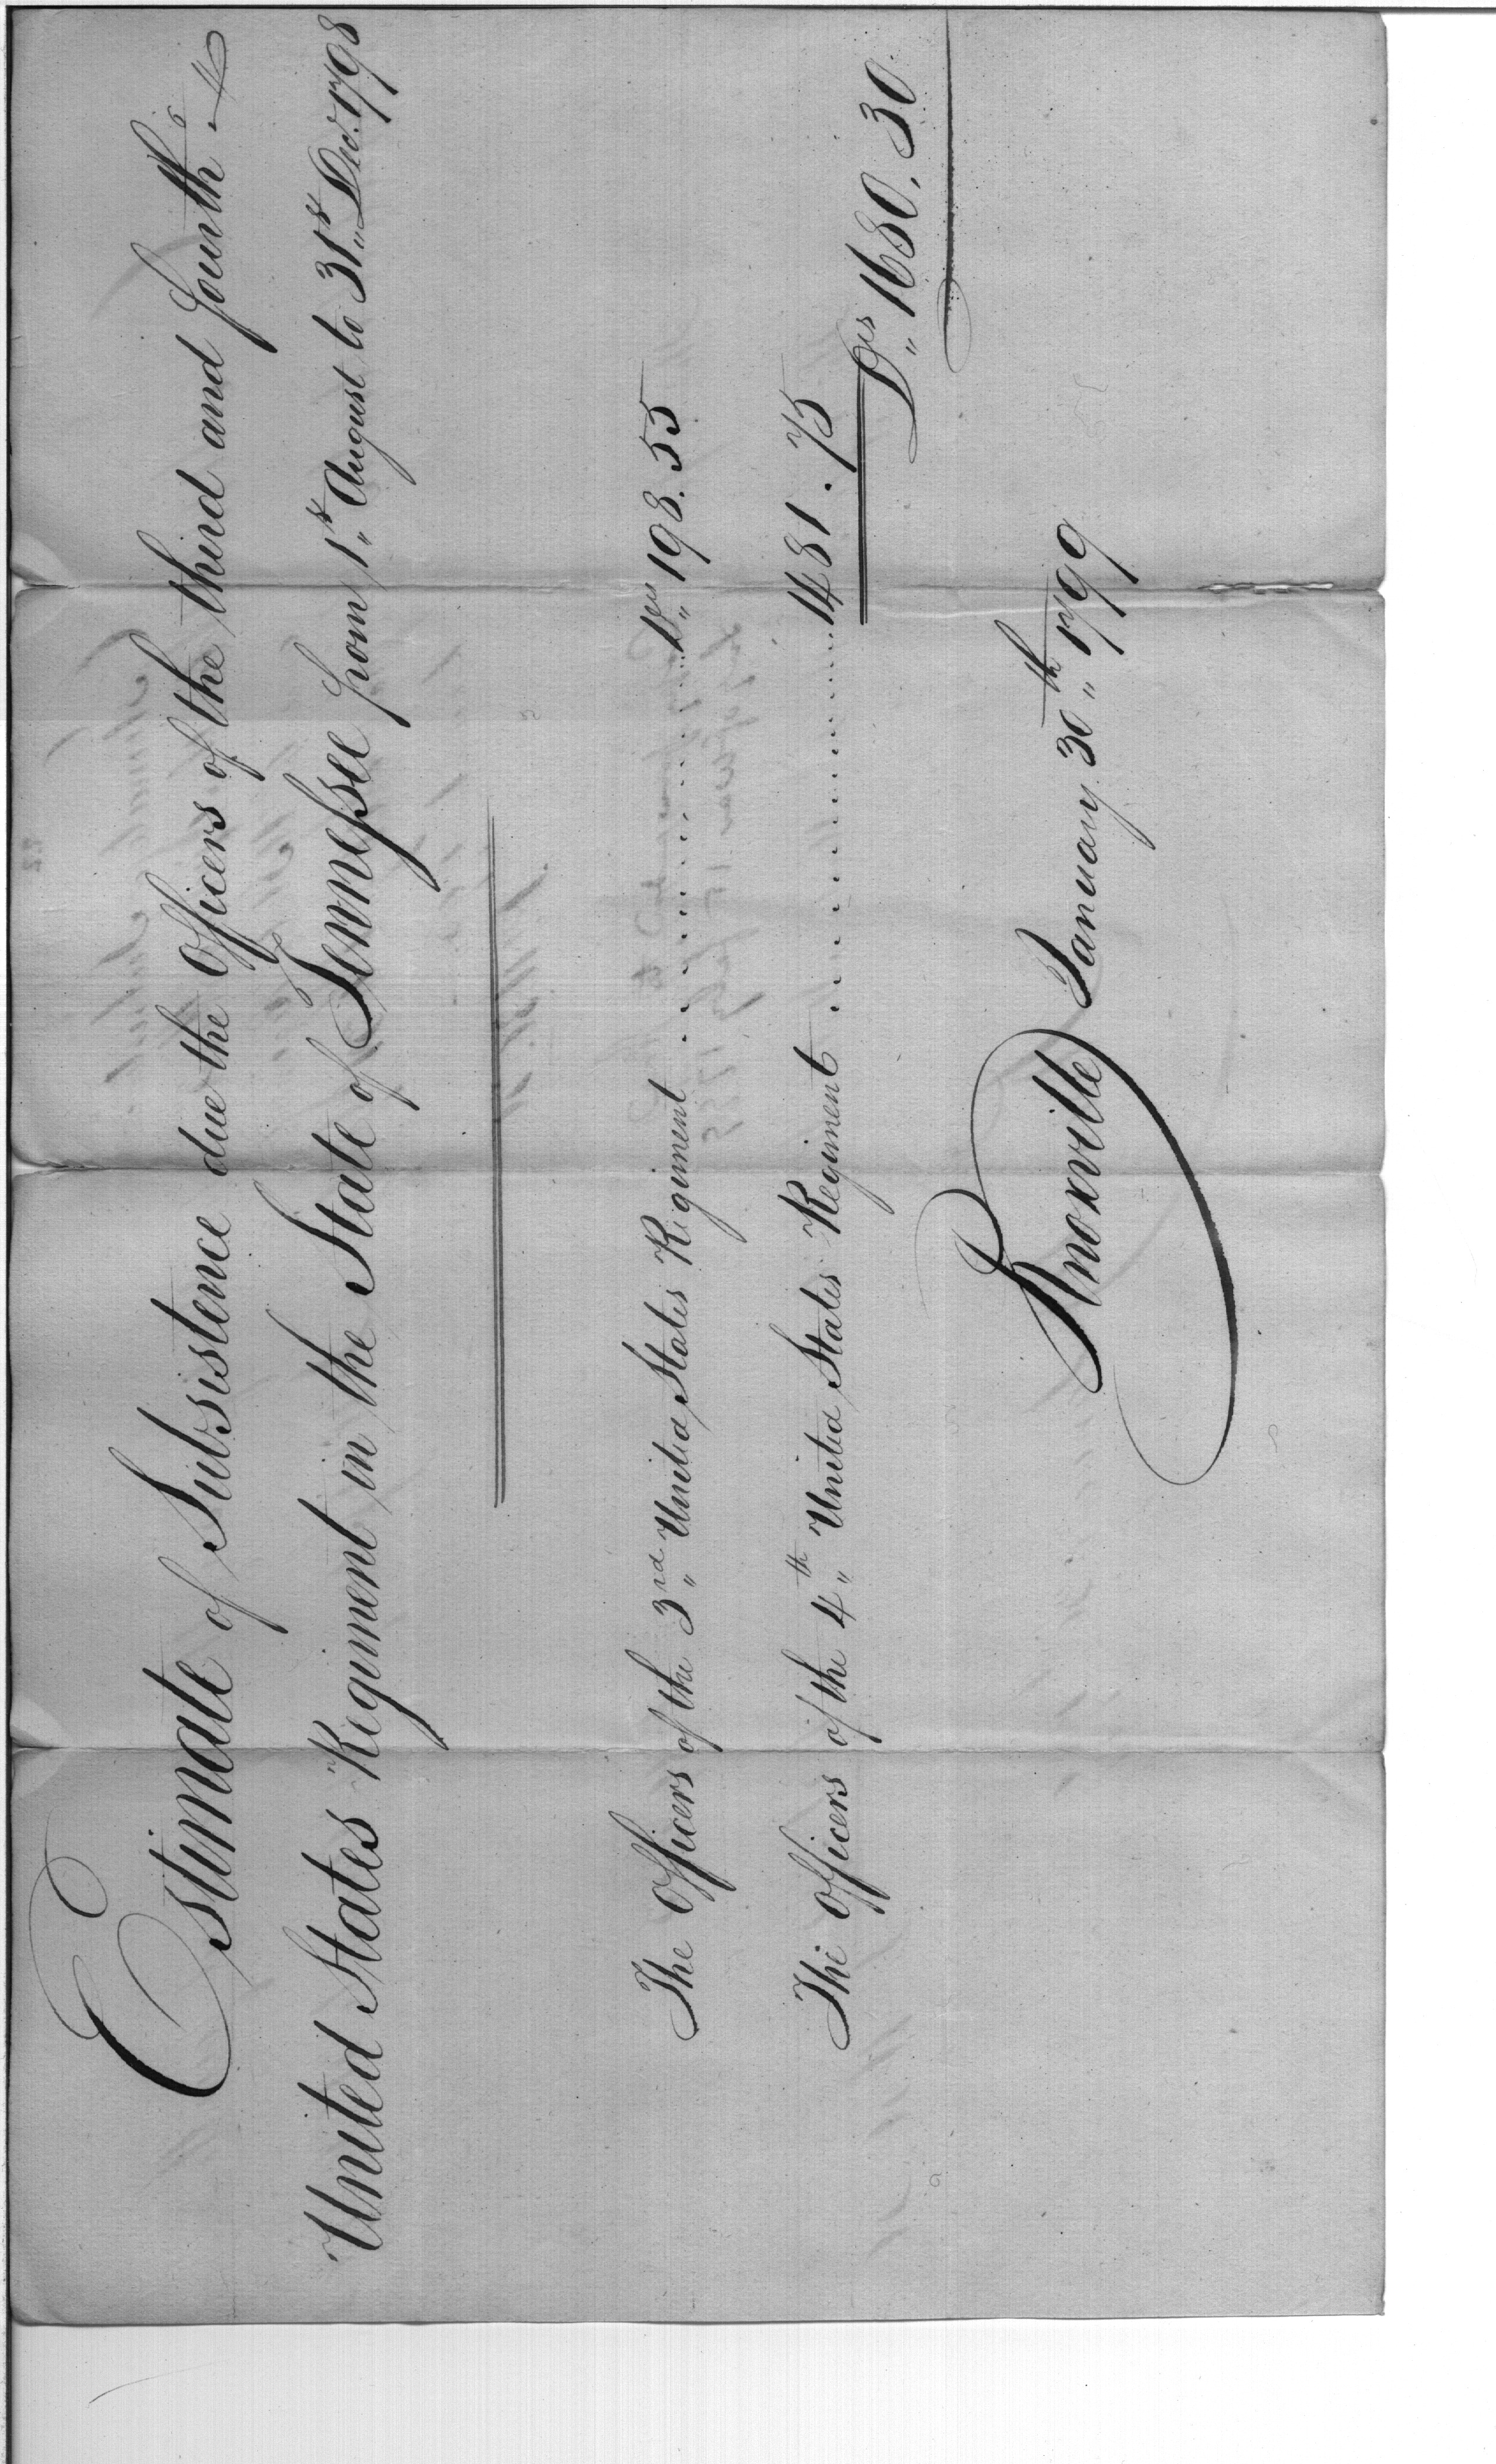 Estimate of Subsistence due the Officers of the third and fourth
United States Regiment in the State of Tennessee from 1st August to 31st Decr. 1798
The Officers of the 3rd United States Regiment .................. Drs 198.55
The Officers of the 4th United States Regiment .................. 1481.75
Drs 1680.30
Knoxville January 30th 1799